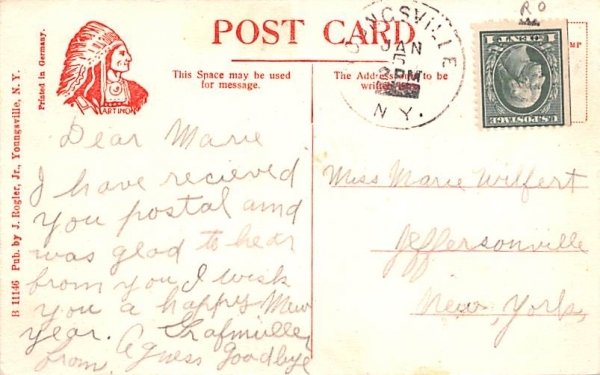 POST CARD
This Space may be used
for message.
The Address to be
ARTINO
Printed in Germany.
B 11146 Pub. by J. Rogler, Jr., Youngsville, N. Y.
NGSVILLE
JAN
PM
N Y.
1 CENT 1
U.S. POSTAGE
R O
Dear Marie
I have recieved
you postal amd
was glad to hear
from you I wish
you a happy New
year.
from, Agness Goodbye
Miss Marie Wilfert
Jeffersonville
New, York,